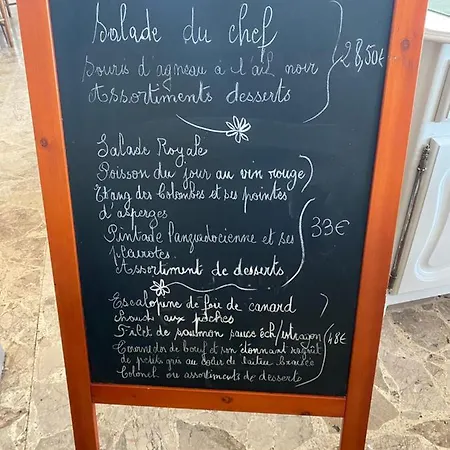 Salade du chef
souris d'agneau à l'ail noir
Assortiments desserts
28,50€
Salade Royale
Poisson du jour au vin rouge
Etang des Colombes et ses pointes
d'asperges
Pintade Languedocienne et ses
pleurotes
Assortiment de desserts
33€
Escalopine de foie de canard
chaud aux pêches
Filet de saumon sauce éch/estragon
Tournedos de boeuf et son étonnant ragoût
de petits gris au de laitue braisée
Colonel ou assortiments de desserts
48€